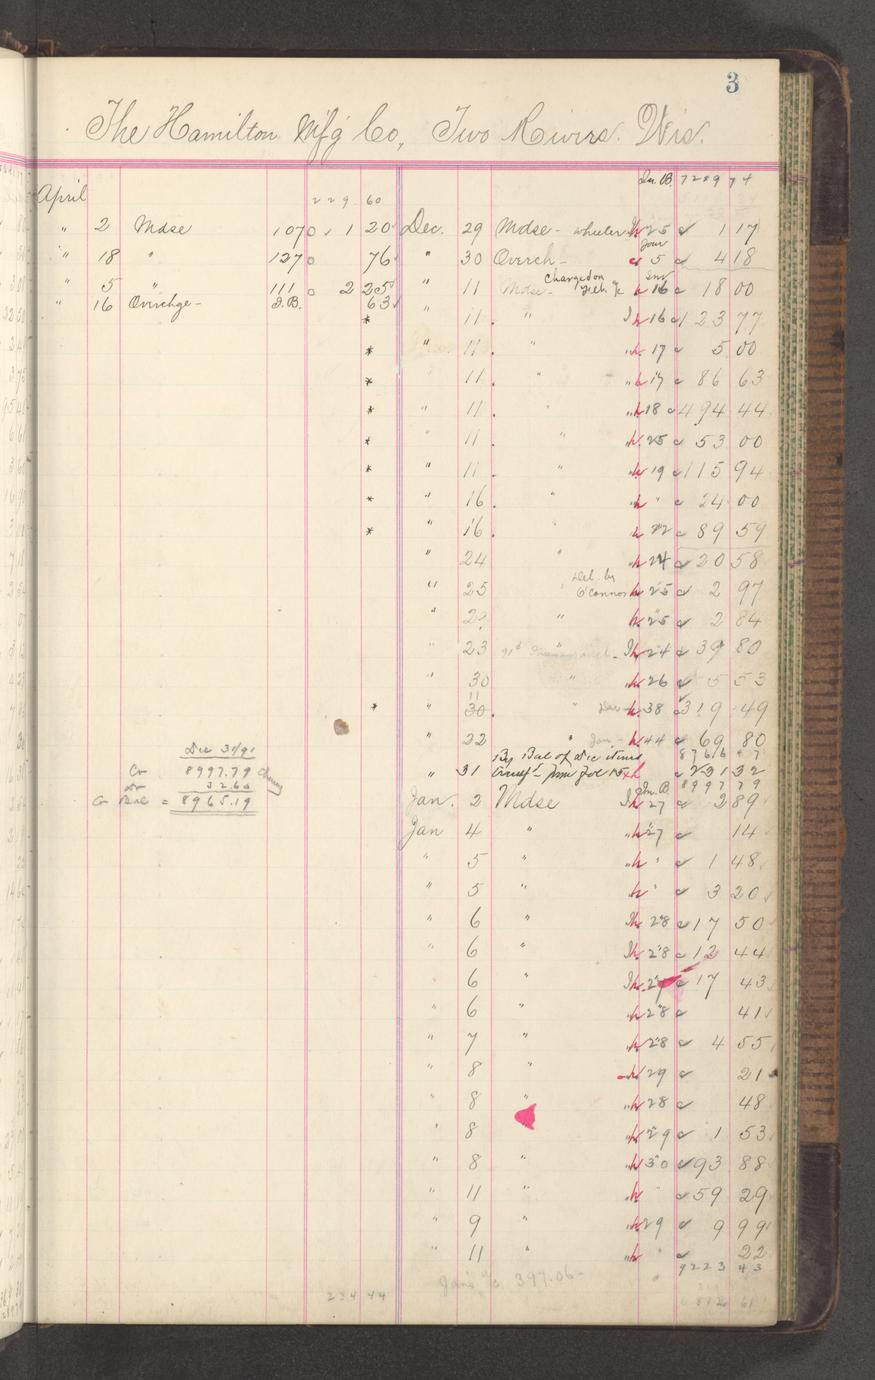 3
The Hamilton Mfg Co, Two Rivers. Wis.
April 229 60 7289 74
" 2 Mdse 107 1 20 Dec. 29 Mdse - wheeler 25 1 17
" 18 " 127 76 " 30 Overch - Jour 5 4 18
" 5 " 111 2 25 " 11 Mdse - Charged on 16 18 00
" 16 Overchge - J.B. 63 " 11 " 16 123 77
* " 11 " 17 5 00
* 11 " 17 86 63
* " 11 " 18 494 44
* " 11 " 25 53 00
* " 11 " 19 115 94
* " 16 " " 24 00
* " 16 " 22 89 59
" 24 " 24 20 58
" 25 " Del. by O'Connor 25 2 97
" " 25 2 84
" 23 24 39 80
" 30 " 26 5 53
* " 11 30 " Dec - 38 319 49
" 22 " Jan - 44 69 80
Dec 31/91 By Bal of Dec items
Cr 8997.79 " 31 231 32
32.60 8997 79
Cr Bal = 8965.19 Jan. 2 Mdse 27 2 89
Jan 4 " 27 14
" 5 " " 1 48
" 5 " " 3 20
" 6 " 28 17 50
" 6 " 28 12 44
" 6 " 27 17 43
" 6 " 28 41
" 7 " 28 4 55
" 8 " 29 21
" 8 " 28 48
" 8 " 29 1 53
" 8 " 30 93 88
" 11 " " 59 29
" 9 " 29 9 99
" 11 " " 22
9223 43
Jan's 397.06 -
234 44